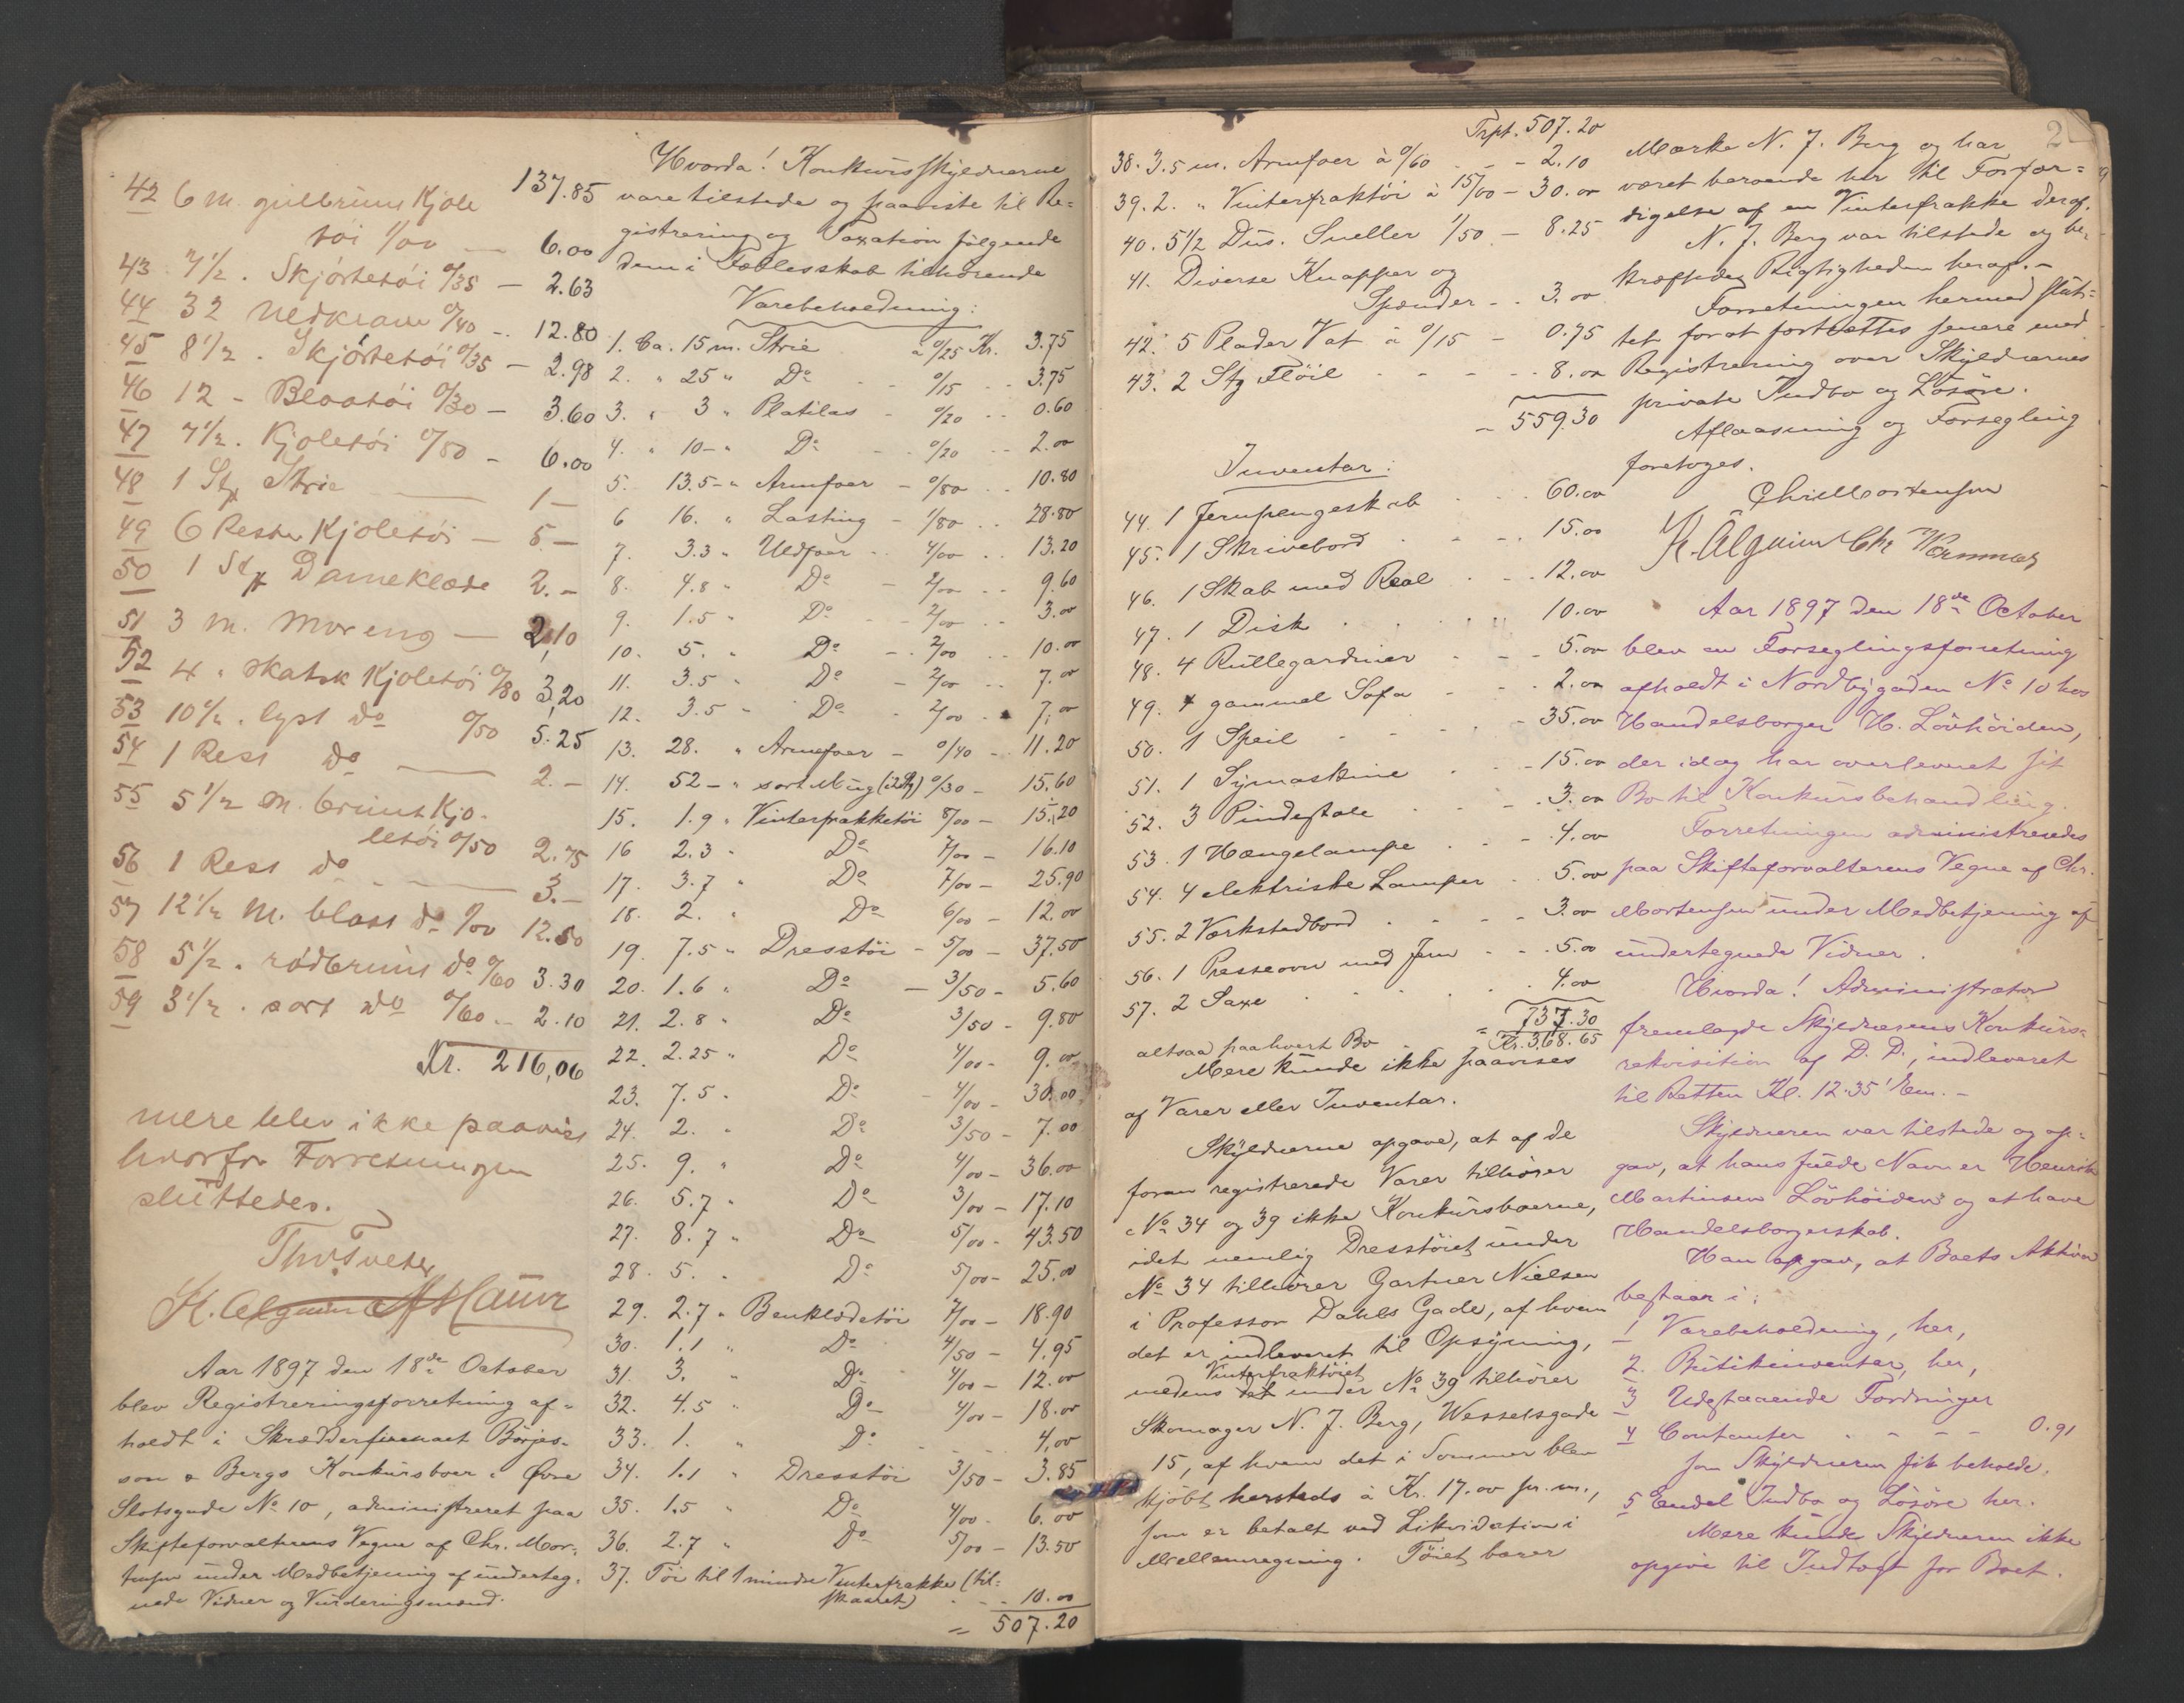 137.85
42 6 m. gulbruns Kjole
tøi 1/00 — 6.00
43 7½ . Skjørtetøi 0/35 — 2.63
44 32 Uldkram 0/40 - . 12.80
45 8½ . Skjørtetöi 0/35 — 2.98
46 12 - Blaatöi 0/30 — 3.60
47 7½ . Kjoletöi 0/80 - 6.00
48 1 St Strie — 1 —
49 6 Rester Kjoletöi — 5 —
50 1 St Dameklæde 2. -
51 3 m. Moreng — 2,10
52 4 " skotsk Kjoletöi 0/80 3,20
53 10½ . lyst do 0/50 5.25
54 1 Rest do — 2. -
55 5½ m. bruns Kjo-
letöi 0/50 2.75
56 1 Rest do — 3. -
57 12½ m. blaat do 1/00 12.50
58 5½ . rödbruns do 0/60 3.30
59 3½ . sort do 0/60 .. 2.10
Kr. 216,06
mere blev ikke paavist
hvorfor Forretningen
sluttedes.
Ths Tveter
K. Algaim
Aar 1897 den 18de October
blev Registreringsforretning af-
holdt i Skrædderfirmaet Börjes-
son & Bergs Konkursboer i Övre
Slotsgade No 10, administreret paa
Skifteforvalterens Vegne af Chr. Mor-
tensen under Medbetjening af underteg-
nede Vidner og Vurderingsmænd.
Hvorda! Konkursskyldnerne
vare tilstede og paaviste til Re-
gistrering og Taxation følgende
dem i Fællesskab tilhørende
Varebeholdning:
1. Ca. 15 m. Strie à 0/25 Kr. 3.75
2. " 25 " Do - - 0/15 - - 3.75
3. " 3 " Platilas - 0/20 - - 0.60
4. " 10- " Do - - 0/20 - - 2.00
5. 13.5- " Armfoer - 0/80 - - 10.80
6 16. " Lasting - 1/80 - - 28.80
7. 3.3 " Uldfoer - - 4/00 - - 13.20
8. 4.8 " Do - 2/00 - - 9.60
9. 1.5 " Do - - 2/00 - - 3.00
10. 5. " Do - - 2/00 - - 10.00
11. 3.5 " Do - 2/00 - - 7.00
12. 3.5 " Do - 2/00 - - 7.00
13. 28. " Armfoer - 0/40 - - 11.20
14. 52- " sort Ming (i 2 St) 0/30 - 15.60
15. 1.9 " Vinterfrakketöi 8/00 - 15.20
16 2.3 " Do 7/00 - 16.10
17. 3.7 " Do 7/00 - 25.90
18. 2. " Do 6/00 - 12.00
19. 7.5 " Dresstöi - 5/00 - 37.50
20. 1.6 " Do - 3/50 - 5.60
21. 2.8 " Do 3/50 - 9.80
22. 2.25 " Do 4/00 - 9.00
23. 7.5 " Do - 4/00 - 30.00
24. 2. " Do 3/50 - 7.00
25. 9. " Do 4/00 - 36.00
26. 5.7 " Do 3/00 - 17.10
27. 8.7 " Do 5/00 - 43.50
28. 5. " Do 5/00 - 25.00
29. 2.7 " Benklædetöi 7/00 - 18.90
30. 1.1 " Do 4/50 - 4.95
31. 3. " Do 4/00 - 12.00
32. 4.5 " Do 4/00 - 18.00
33. 1. " Do - - - 4,00
34. 1.1 " Dresstöi 3/50 - 3.85
35. 1.5 " Do 4/00 - 6.00
36. 2.7 " Do 5/00 - 13.50
37. Töi til 1 mindre Vinterfrakke (til-
skaaret) - - 10.00
= 507.20
Trpt. 507.20
38. 3.5 m. Armfoer à 0/60 - - - 2.10
39. 2. " Vinterfraktöi à 15/00 - 30.00
40. 5½ Dus. Sneller 1/50 - 8.25
41. Diverse Knapper og
Spænder - - 3.00
42. 5 Plader Vat à 0/15 - 0.75
43. 2 Stg Flöil - - - - 8.00
- 559.30
Inventar:
44. 1 Jernpengeskab - - - 60.00
45. 1 Skrivebord - - - 15.00
46. 1 Skab med Reol - - - 12.00
47. 1 Disk - - - 10.00
48. 4 Rullegardiner - - - 5.00
49. 1 gammel Sofa - - - 2.00
50. 1 Speil - - - 35.00
51. 1 Symaskine - - - 15.00
52. 3 Pindestole - - - 3.00
53. 1 Hængelampe - - - 4.00
54. 4 elektriske Lamper - - 5.00
55. 2 Værkstedbord - - - 3.00
56. 1 Presseovn med Jern - - 5.00
57. 2 Saxe - - - 4.00
= 737.30
altsaa paa hvert Bo - Kr. 368.65
Mere kunde ikke paavises
af Varer eller Inventar.
Skyldnerne opgave, at af de
foran registrerede Varer tilhører
No 34 og 39 ikke Konkursboerne,
idet nemlig Dresstöiet under
No 34 tilhører Gartner Nielsen
i Professor Dahls Gade, af hvem
det er indleveret til Opsyning,
Vinterfraktöiet
medens det under No 39 tilhører
Skomager N. J. Berg, Wesselsgade
15, af hvem det i Sommer blev
kjöbt hersteds à Kr. 17.00 pr. m.,
som er betalt ved Likvidation i
Mellemregning. Töiet bærer
2
Mærke N. J. Berg og har
været beroende her til Forfær-
digelse af en Vinterfrakke deraf.
N. J. Berg var tilstede og be-
kræftede Rigtigheden heraf. -
Forretningen hermed slut-
tet forat fortsættes senere med
Registrering over Skyldnernes
private Indbo og Lösöre.
Aflaasning og Forsegling
foretoges.
Chr Mortensen
K. Algaim Chr
Aar 1897 den 18de October
blev en Forseglingsforretning
afholdt i Nordbygaden No 10 hos
Handelsborger H. Lövhöiden,
der idag har overleveret sit
Bo til Konkursbehandling.
Forretningen administreredes
paa Skifteforvalterens Vegne af Chr.
Mortensen under Medbetjening af
undertegnede Vidner.
Hvorda! Administrator
fremlagde Skyldnerens Konkurs-
rekvisition af D. D., indleveret
til Retten Kl. 12.35' Em. -
Skyldneren var tilstede og op-
gav, at hans fulde Navn er Henrik
Martinsen Lövhöiden og at have
Handelsborgerskab.
Han opgav, at Boets Aktiva
bestaar i:
1 Varebeholdning, her,
2. Butikinventar, her,
3 Udestaaende Fordringer
4 Contanter - - - - 0.91
som Skyldneren fik beholde.
5 Endel Indbo og Lösöre her.
Mere kunde Skyldneren ikke
opgive til Indtægt for Boet.